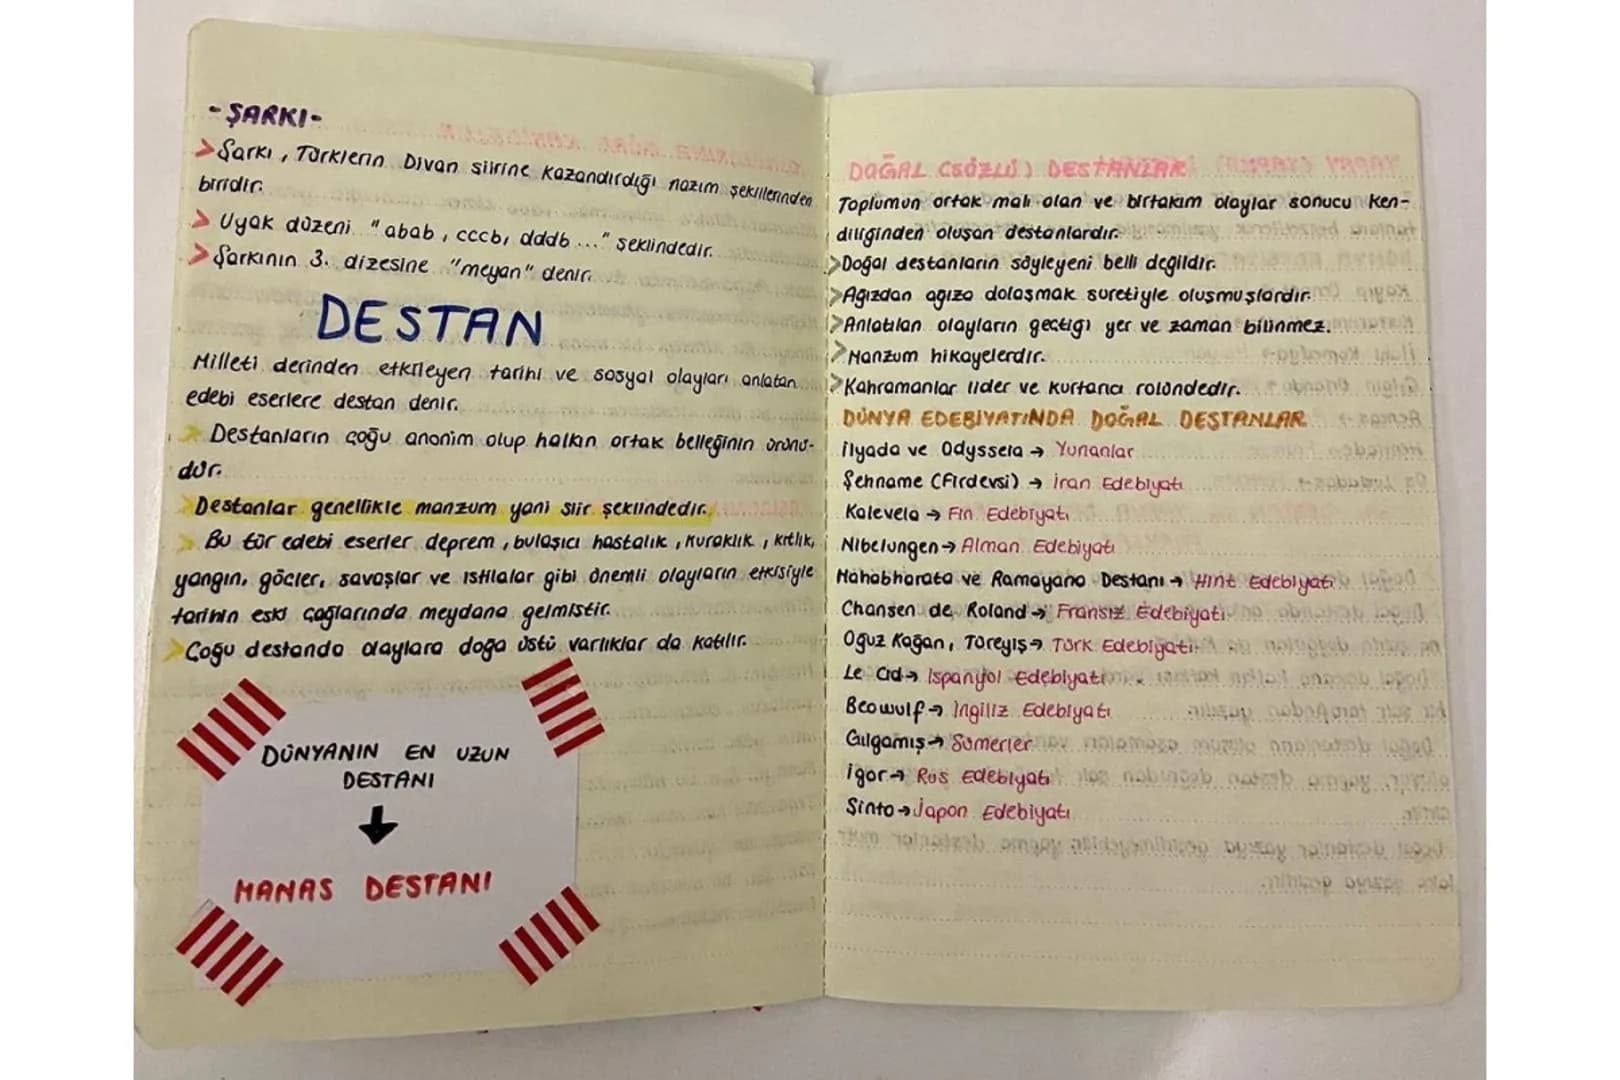 -ŞARKI-
>Şarkı, Türklerin Divan şiirine kazandırdığı nazım şekillerinden
biridir.
> Uyak düzeni "abab, cccb, dddb..." şeklindedir.
>Şarkının 3. dizesine "meyan" denir.
DESTAN
Milleti derinden etkileyen tarihi ve sosyal olayları anlatan
edebi eserlere destan denir.
> Destanların çoğu anonim olup halkın ortak belleğinin ürünü-
dür.
>Destanlar genellikle manzum yani şiir şeklindedir.
> Bu tür edebi eserler deprem, bulaşıcı hastalık, kuraklık, kıtlık,
yangın, göçler, savaşlar ve istilalar gibi önemli olayların etkisiyle
tarihin eski çağlarında meydana gelmiştir.
>Çoğu destanda olaylara doğa üstü varlıklar da katılır.
DÜNYANIN EN UZUN
DESTANI
↓
MANAS DESTANI
DOĞAL (SÖZLÜ) DESTANLAR
Toplumun ortak malı olan ve birtakım olaylar sonucu ken-
diliğinden oluşan destanlardır.
>Doğal destanların söyleyeni belli değildir.
>Ağızdan ağıza dolaşmak suretiyle oluşmuşlardır.
>Anlatılan olayların geçtiği yer ve zaman bilinmez.
>Manzum hikayelerdir.
>Kahramanlar lider ve kurtarıcı rolündedir.
DÜNYA EDEBİYATINDA DOĞAL DESTANLAR
İlyada ve Odysseia → Yunanlar
Şehname (Firdevsi) → İran Edebiyatı
Kalevela → Fin Edebiyatı
Nibelungen → Alman Edebiyatı
Mahabharata ve Ramayana Destanı → Hint Edebiyatı
Chansen de Roland → Fransız Edebiyatı
Oğuz Kağan, Türeyiş → Türk Edebiyatı
Le Cid → İspanyol Edebiyatı
Beowulf → İngiliz Edebiyatı
Gılgamış → Sümerler
İgor → Rus Edebiyatı
Şinto → Japon Edebiyatı